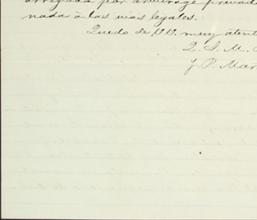 arreglada por arbitrage privado
nada á las vias legales.
Quedo de VV. muy atent
Q. S. M. B
J. P. Mar